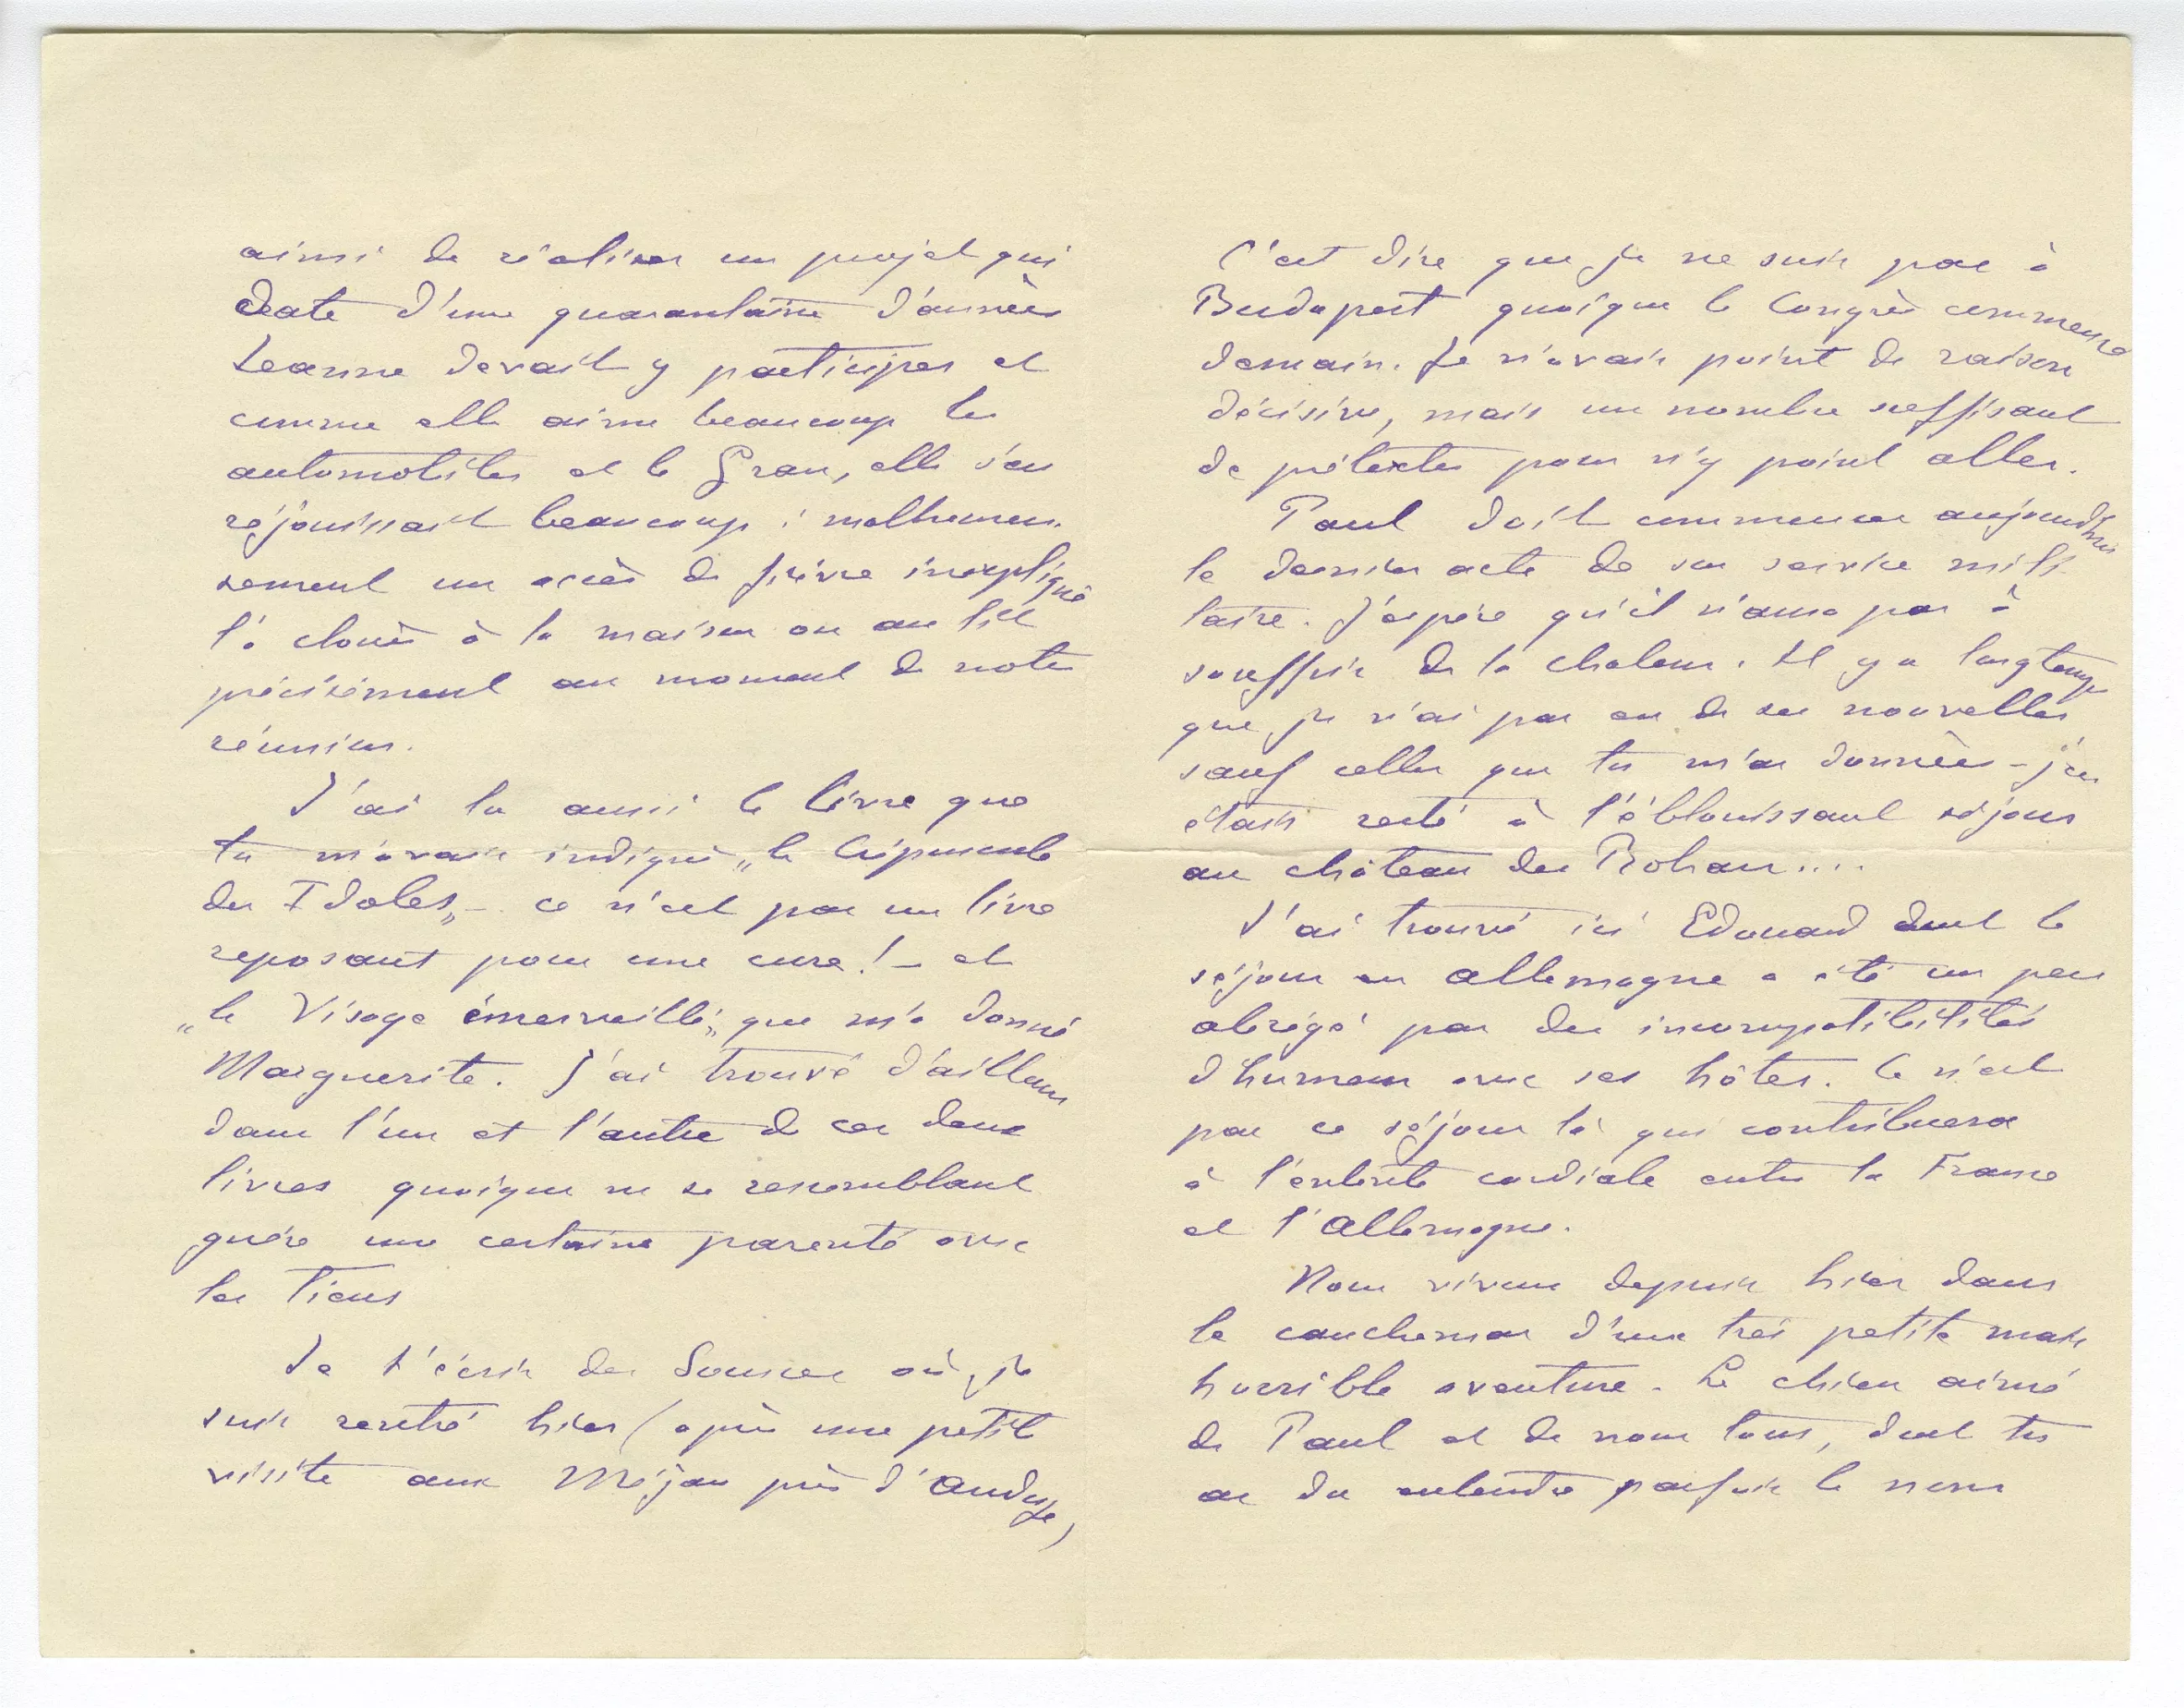 ainsi de réaliser un projet qui
date d'une quarantaine d'années
Jeanne devait y participer et
comme elle aime beaucoup les
automobiles et le Grau, elle s'en
réjouissait beaucoup ; malheureu-
sement un accès de fièvre inexpliqué
l'a clouée à la maison ou au lit
précisément au moment de notre
réunion.
J'ai lu aussi le livre que
tu m'avais indiqué „le Crépuscule
des Idoles„ – ce n'est pas un livre
reposant pour une cure ! – et
„le Visage émerveillé„ que m'a donné
Marguerite. J'ai trouvé d'ailleurs
dans l'un et l'autre de ces deux
livres quoique ne se ressemblant
guère une certaine parenté avec
les tiens
Je t'écris des Sources où je
suis rentré hier (après une petite
visite aux Méjan près d'Anduze)
C'est dire que je ne suis pas à
Budapest quoique le Congrès commence
demain. Je n'avais point de raison
décisive, mais un nombre suffisant
de prétextes pour n'y point aller.
Paul doit commencer aujourd'hui
le dernier acte de son service mili-
taire. J'espère qu'il n'aura pas à
souffrir de la chaleur. Il y a longtemps
que je n'ai pas eu de ses nouvelles
sauf celles que tu m'as données – j'en
étais resté à l'éblouissant séjour
au château des Rohan....
J'ai trouvé ici Edouard dont le
séjour en Allemagne a été un peu
abrégé par des incompatibilités
d'humeur avec ses hôtes. Ce n'est
pas ce séjour là qui contribuera
à l'entente cordiale entre la France
et l'Allemagne.
Nous vivons depuis hier dans
le cauchemar d'une très petite mais
horrible aventure. Le chien aimé
de Paul et de nous tous, dont tu
as du entendre parfois le nom